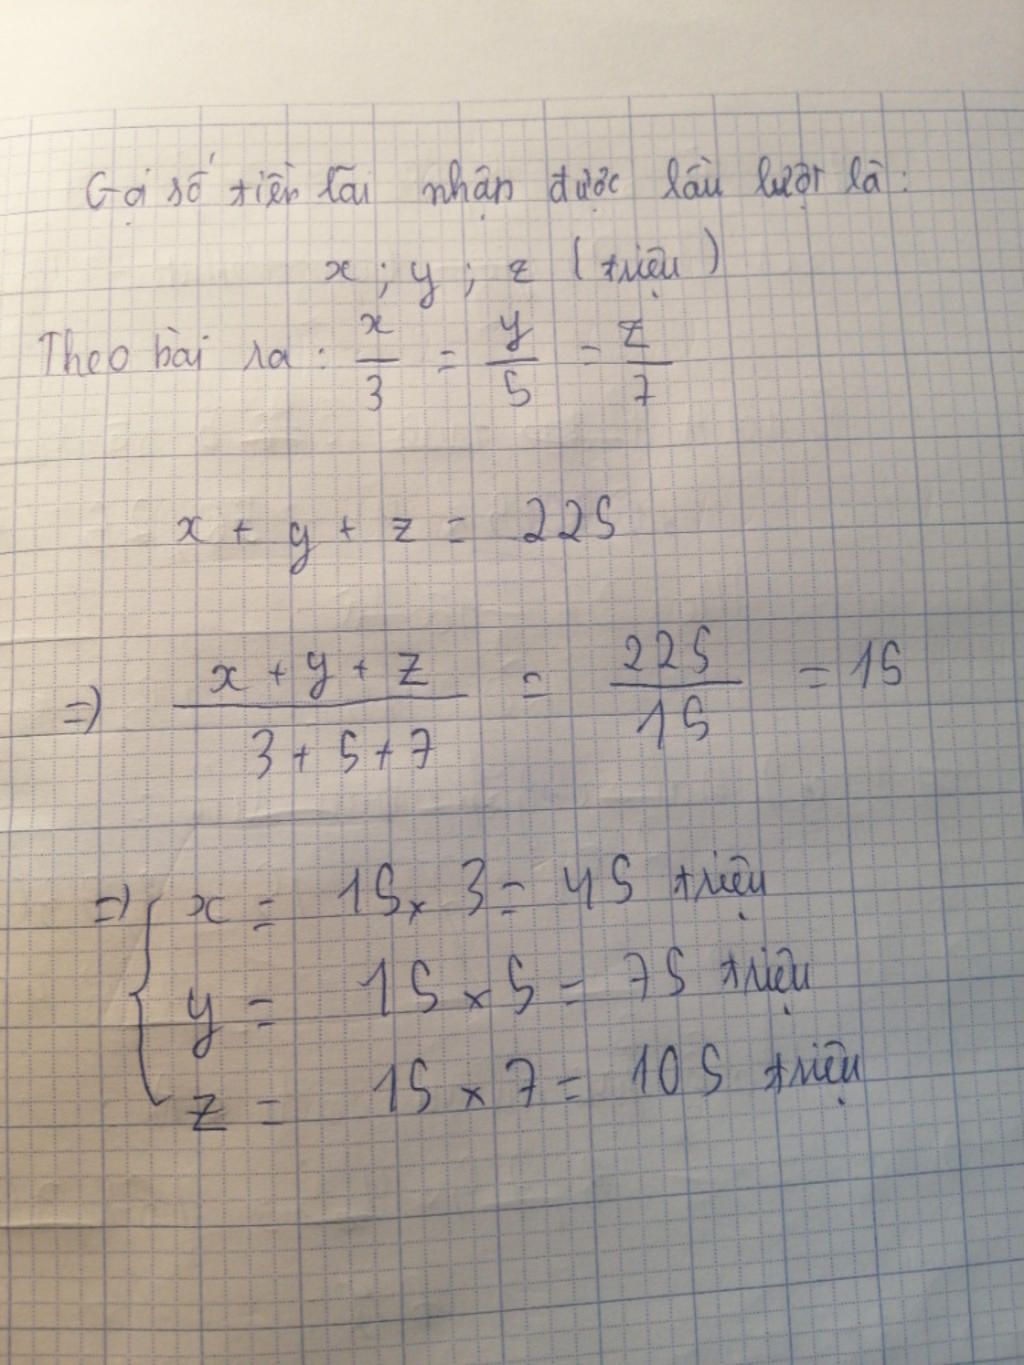 Gọi số tiền lãi nhận được lần lượt là:
x ; y ; z (triệu)
Theo bài ra: x/3 = y/5 = z/7
x + y + z = 225
=> (x + y + z)/(3 + 5 + 7) = 225/15 = 15
=> { x = 15 x 3 = 45 triệu
y = 15 x 5 = 75 triệu
z = 15 x 7 = 105 triệu